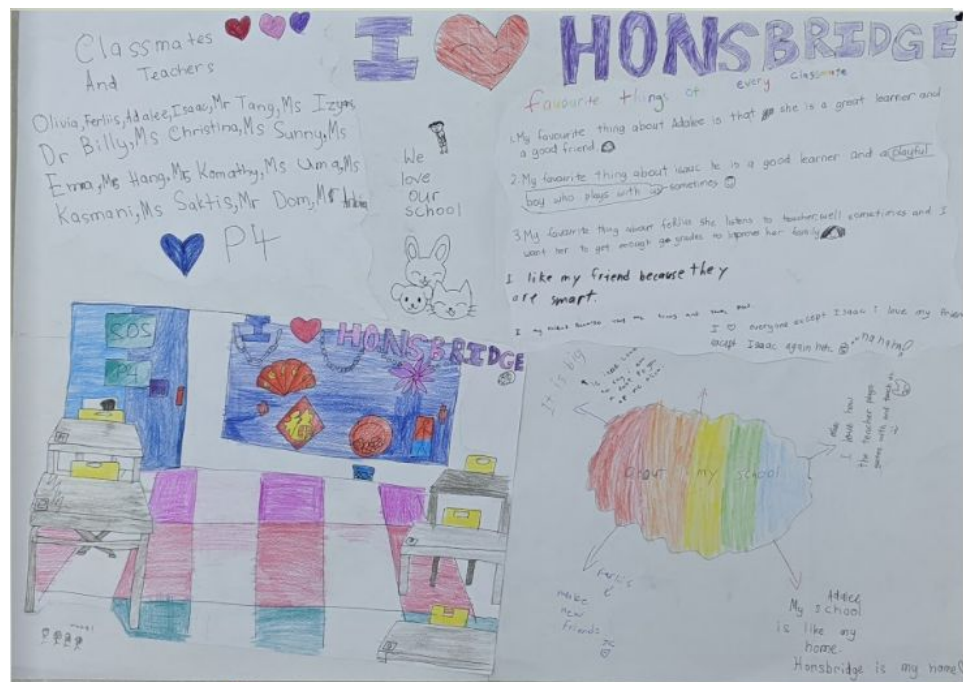 I HONSBRIDGE
Classmates
And Teachers
Olivia, Ferliis, Adalee, Isaac, Mr Tang, Ms Izyos,
Dr Billy, Ms Christina, Ms Sunny, Ms
Emma, Ms Hang, Ms Komathy, Ms Uma, Ms
Kasmani, Ms Saktis, Mr Dom, Mr
P4
We
love
our
school
favourite things of every classmate
1. My favourite thing about Adalee is that she is a great learner and
a good friend.
2. My favourite thing about isaac he is a good learner and a playful
boy who plays with us sometimes
3. My favourite thing about she listens to teacher well sometimes and I
want her to get enough grades to improve her family
I like my friend because they
are smart.
I everyone except Isaac I love my friend
except Isaac again
SOS
P4
I HONSBRIDGE
福
It is big
about my school
I love how
the teacher plays
games with and
it
make
new
friends
Adalee
My school
is like my
home.
Honsbridge is my home